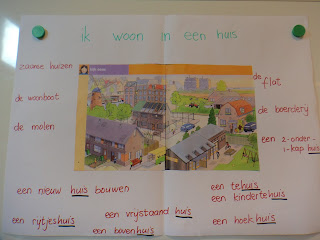 ik woon in een huis
zaanse huizen
de woonboot
de molen
de flat
de boerderij
een 2-onder-
1-kap huis
een nieuw huis bouwen
een rijtjeshuis
een vrijstaand huis
een bovenhuis
een tehuis
een kindertehuis
een hoekhuis